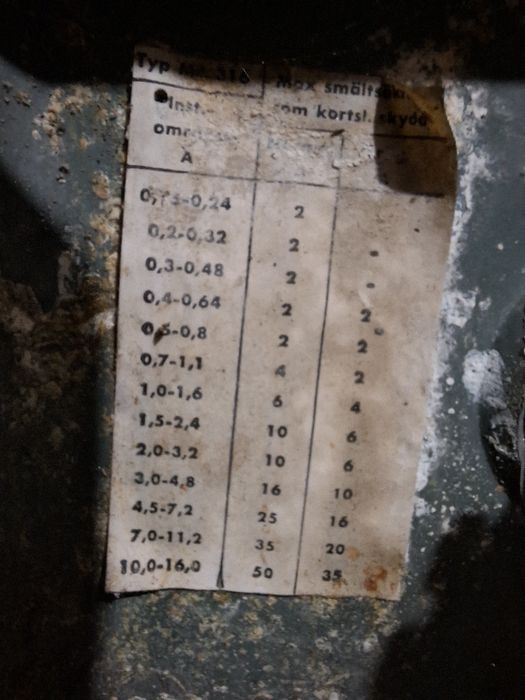 Typ
Max
Inst. som kortsl. skydd
A
0,15-0,24 2
0,2-0,32 2 -
0,3-0,48 2 -
0,4-0,64 2 2
0,5-0,8 2 2
0,7-1,1 4 2
1,0-1,6 6 4
1,5-2,4 10 6
2,0-3,2 10 6
3,0-4,8 16 10
4,5-7,2 25 16
7,0-11,2 35 20
10,0-16,0 50 35